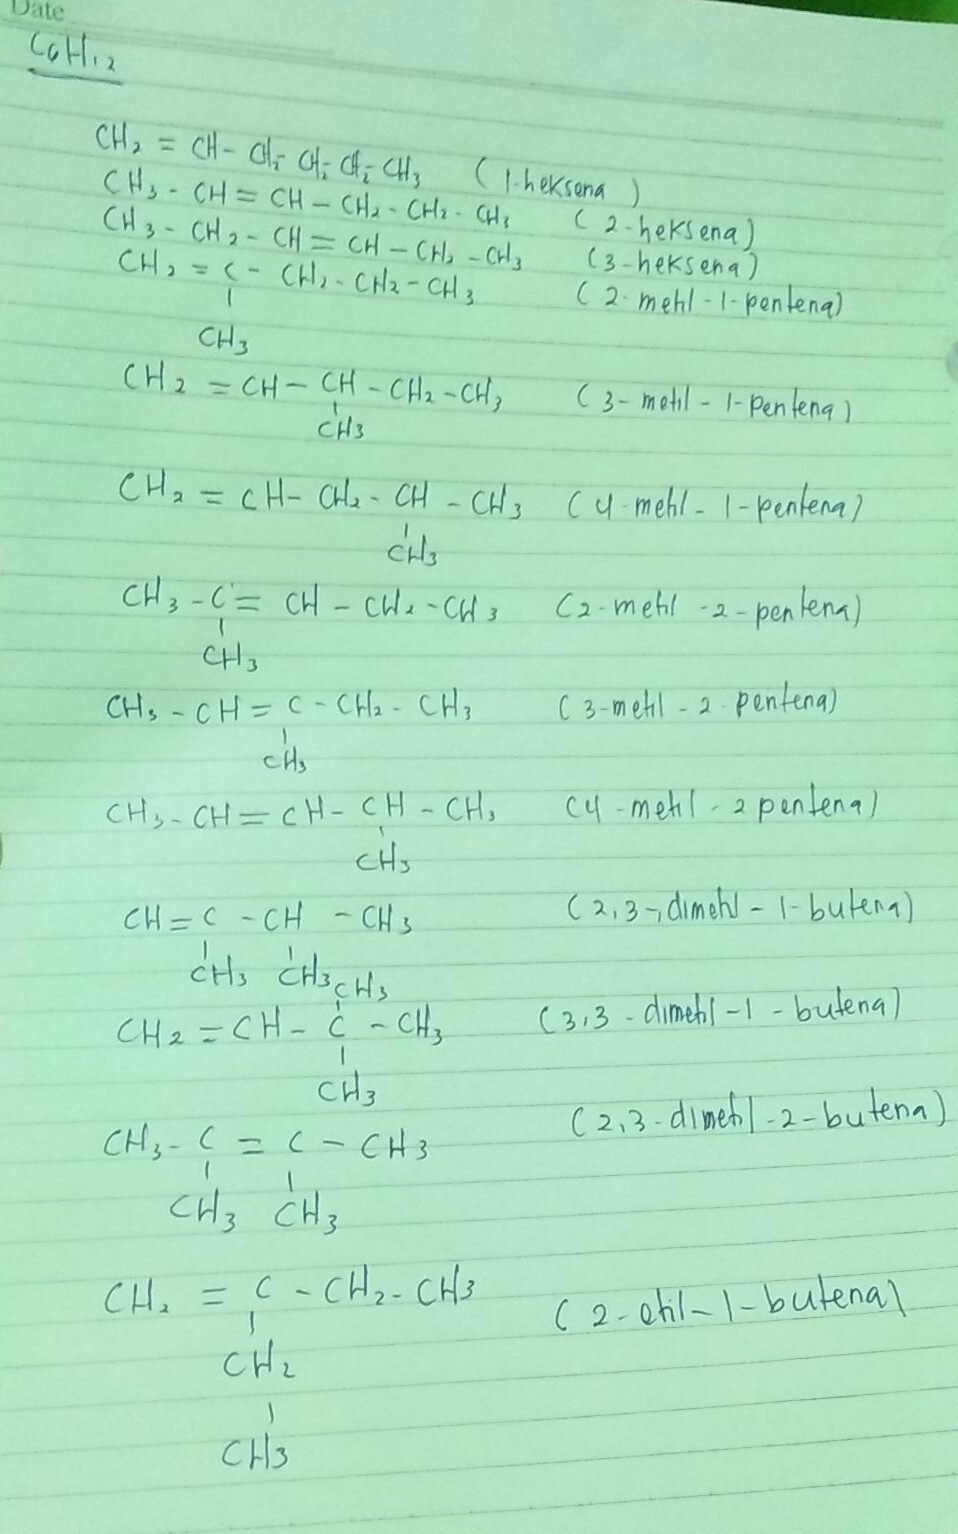 Date
C6H12
CH2 = CH - CH2 - CH2 - CH2 - CH3 (1-heksena)
CH3 - CH = CH - CH2 - CH2 - CH3 (2-heksena)
CH3 - CH2 - CH = CH - CH2 - CH3 (3-heksena)
CH2 = C - CH2 - CH2 - CH3 (2-metil-1-pentena)
CH3
CH2 = CH - CH - CH2 - CH3 (3-metil-1-pentena)
CH3
CH2 = CH - CH2 - CH - CH3 (4-metil-1-pentena)
CH3
CH3 - C = CH - CH2 - CH3 (2-metil-2-pentena)
CH3
CH3 - CH = C - CH2 - CH3 (3-metil-2-pentena)
CH3
CH3 - CH = CH - CH - CH3 (4-metil-2 pentena)
CH3
CH = C - CH - CH3 (2,3-dimetil-1-butena)
CH3 CH3
CH3
CH2 = CH - C - CH3 (3,3-dimetil-1-butena)
CH3
CH3 - C = C - CH3 (2,3-dimetil-2-butena)
CH3 CH3
CH2 = C - CH2 - CH3 (2-etil-1-butena)
CH2
CH3